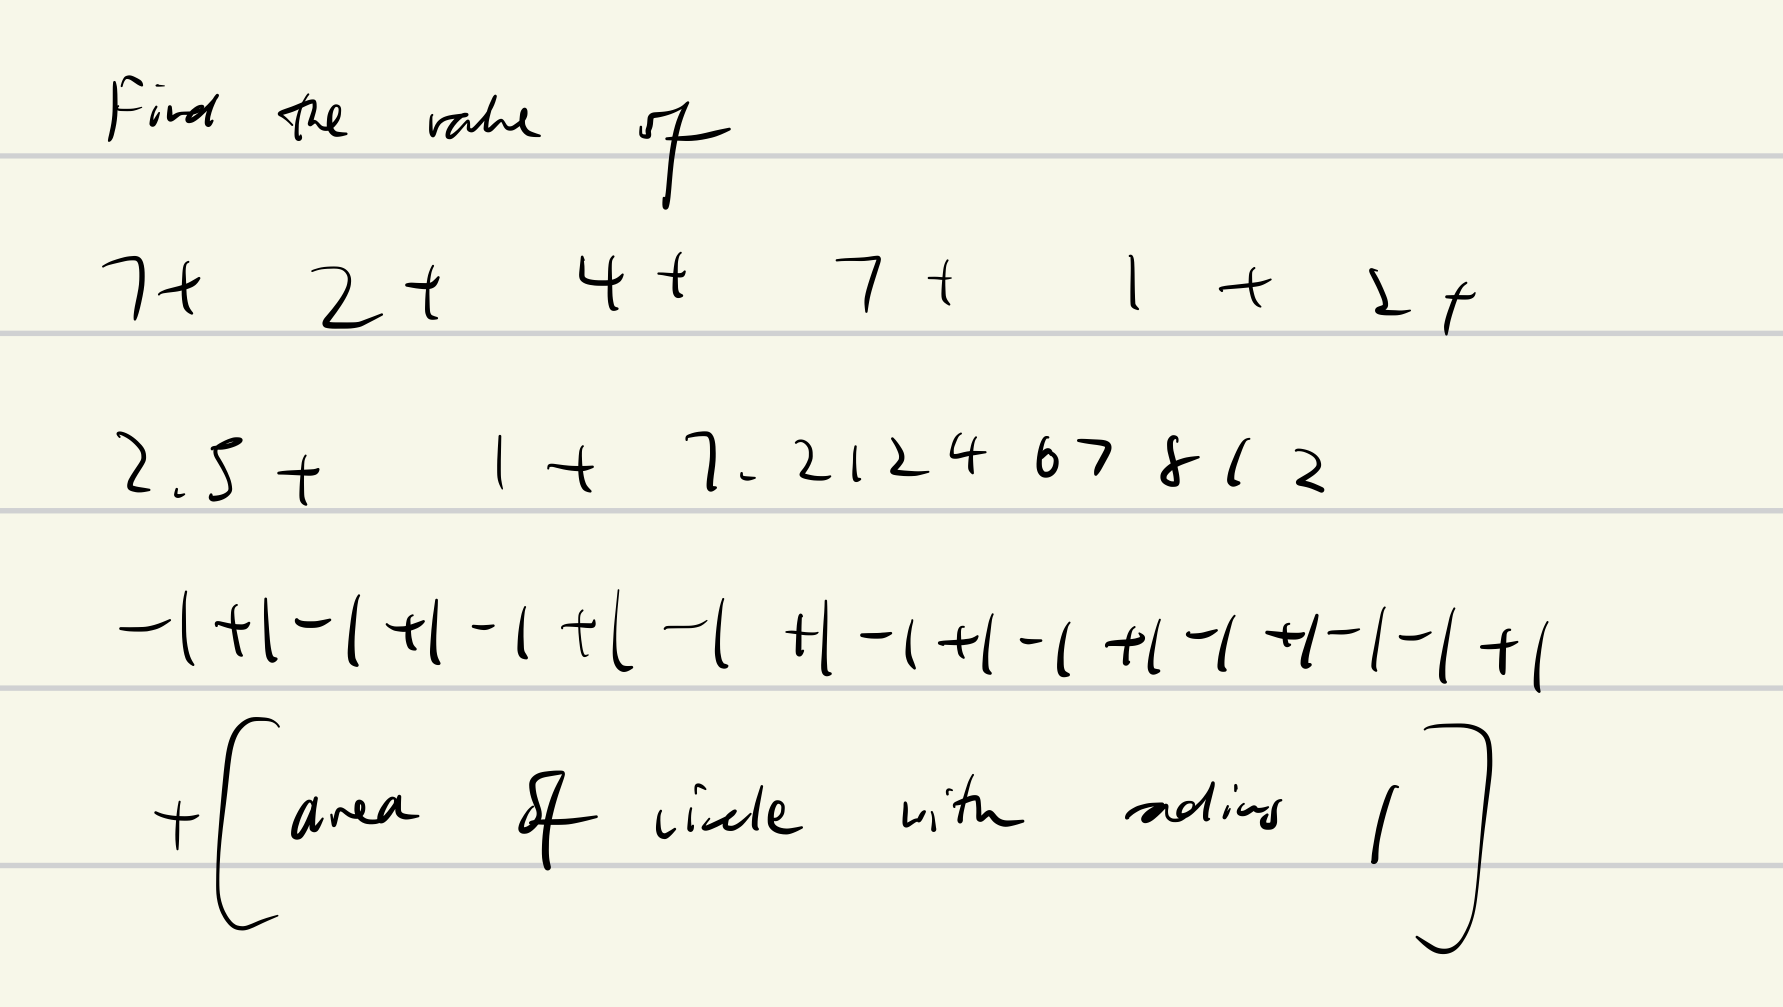 Find the value of
7+ 2+ 4+ 7+ 1+ 2+
2.5+ 1+ 7.212407812
-1+1-1+1-1+1-1+1-1+1-1+1-1+1-1-1+1
+[area of circle with radius 1]